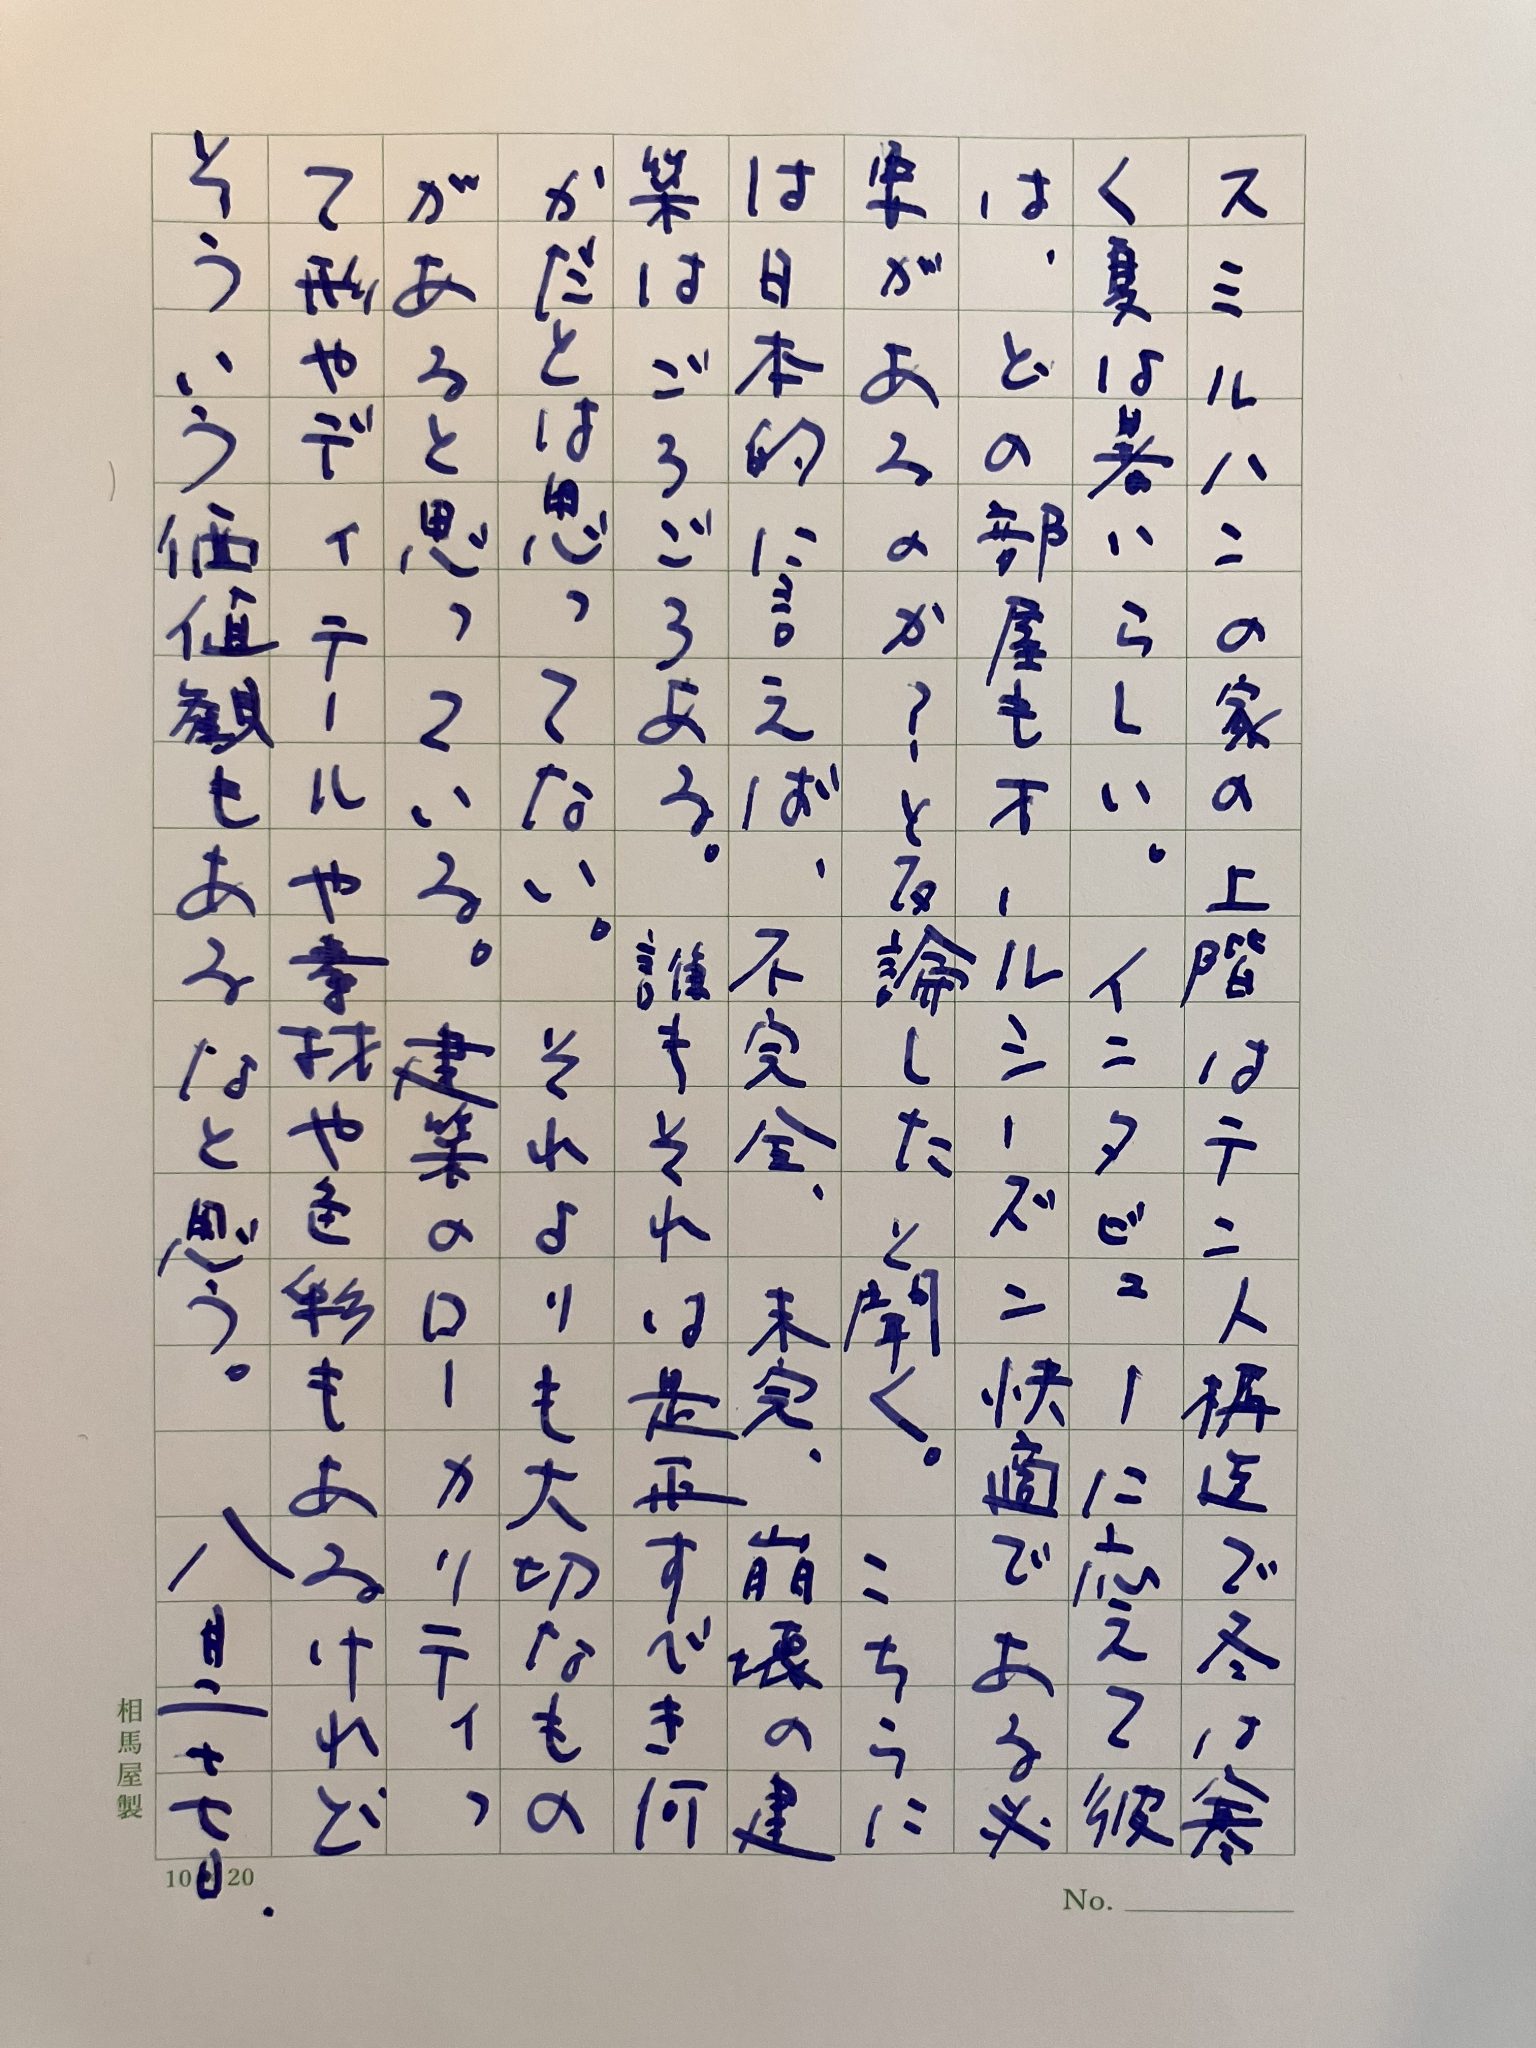 スミルハンの家の上階はテント構造で冬は寒
く夏は暑いらしい。インタビューに応えて彼
は、どの部屋もオールシーズン快適である必
要があるのか?と反論したと聞く。こちらに
は日本的に言えば、不完全、未完、崩壊の建
築はごろごろある。誰もそれは是正すべき何
かだとは思ってない。それよりも大切なもの
があると思っている。建築のローカリティっ
て形やディテールや素材や色彩もあるけれど
そういう価値観もあるなと思う。八月二十七日.
相馬屋製
10 20
No.